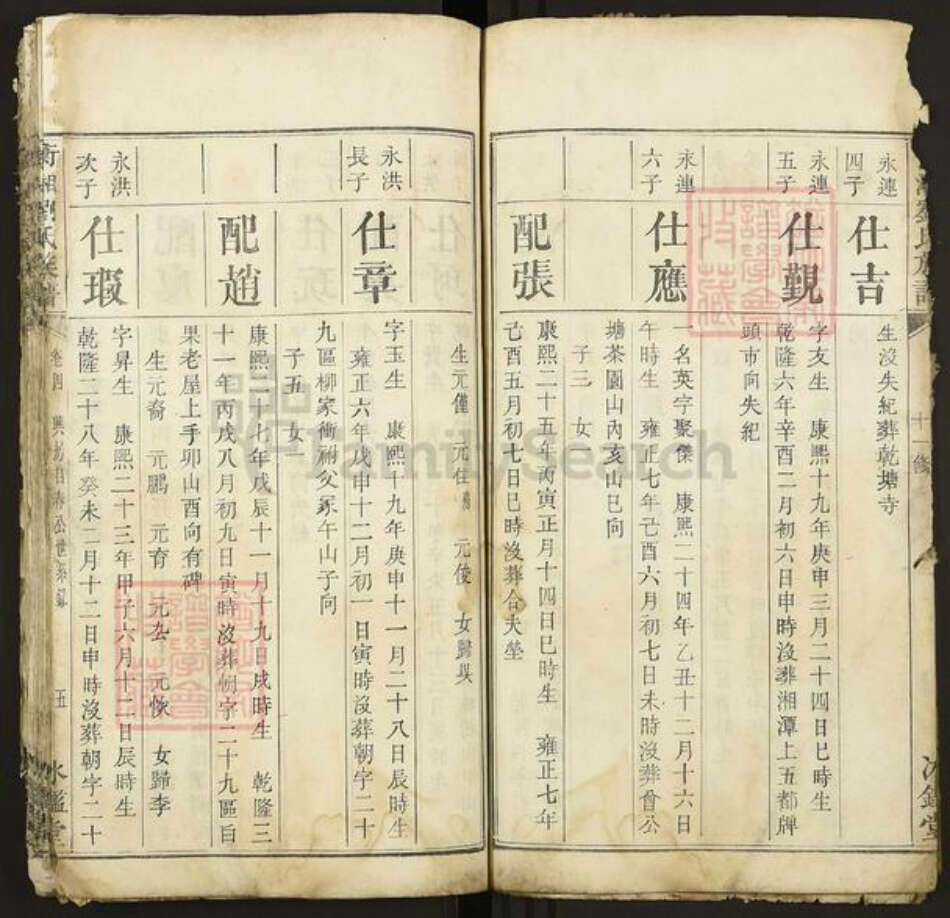 永連
四子
仕吉
生沒失紀葬乾塘寺
永連
五子
仕覲
字友生 康熙十九年庚申三月二十四日巳時生
乾隆六年辛酉二月初六日申時沒葬湘潭上五都牌
頭市向失紀
永連
六子
仕應
一名英字聚傑 康熙二十四年乙丑十二月十六日
午時生 雍正七年己酉六月初七日未時沒葬會公
塘茶園山內亥山巳向
子三 女一
配張
康熙二十五年丙寅正月十四日巳時生 雍正七年
己酉五月初七日巳時沒葬合夫塋
生元僅 元任 元俊 女歸吳
永洪
長子
仕章
字玉生 康熙十九年庚申十一月二十八日辰時生
雍正六年戊申十二月初一日寅時沒葬朝字二十
九區柳家衝祔父冢午山子向
子五 女一
配趙
康熙二十七年戊辰十一月十九日戌時生 乾隆三
十一年丙戌八月初九日寅時沒葬朝字二十九區自
果老屋上手卯山酉向有碑
生元裔 元鵬 元育 元厺 元恢 女歸李
永洪
次子
仕瑕
字昇生 康熙二十三年甲子六月十二日辰時生
乾隆二十八年癸未二月十二日申時沒葬朝字二十
衡湘劉氏族譜
卷四
五
氷鑑堂
FamilySearch